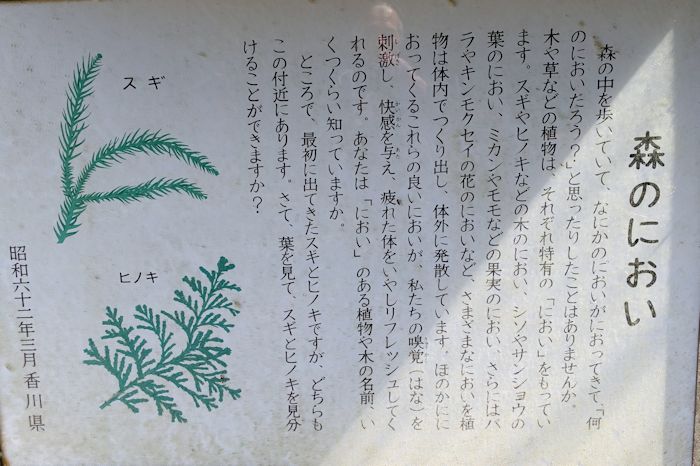 森のにおい
森の中を歩いていて、なにかのにおいがにおってきて、「何
のにおいだろう？」と思ったりしたことはありませんか。
木や草などの植物は、それぞれ特有の「におい」をもってい
ます。スギやヒノキなどの木のにおい、シソやサンショウの
葉のにおい、ミカンやモモなどの果実のにおい、さらにはバ
ラやキンモクセイの花のにおいなど、さまざまなにおいを植
物は体内でつくり出し、体外に発散しています。ほのかにに
おってくるこれらの良いにおいが、私たちの嗅覚（はな）を
刺激し、快感を与え、疲れた体をいやしリフレッシュしてく
れるのです。あなたは「におい」のある植物や木の名前、い
くつくらい知っていますか。
ところで、最初に出てきたスギとヒノキですが、どちらも
この付近にあります。さて、葉を見て、スギとヒノキを見分
けることができますか？
スギ
ヒノキ
昭和六十二年三月 香川県